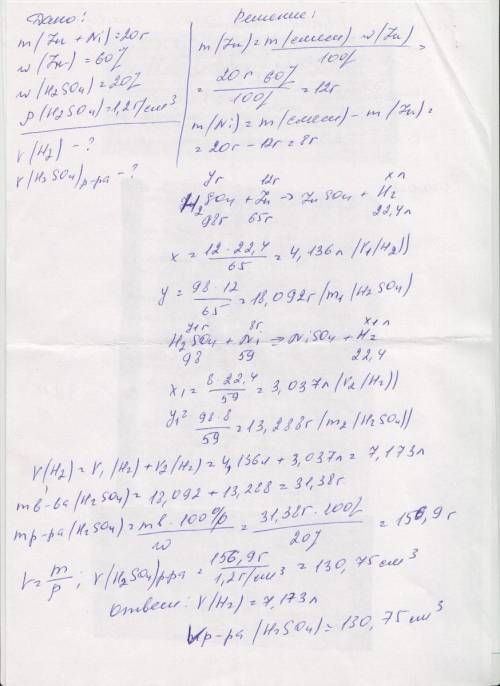 Дано:
m(Zn + Ni) = 20г
w(Zn) = 60%
w(H2SO4) = 20%
ρ(H2SO4) = 1,2г/см³
V(H2) - ?
V(H2SO4)р-ра - ?
Решение:
m(Zn) = m(смеси) · w(Zn) / 100% =
= 20г · 60% / 100% = 12г
m(Ni) = m(смеси) - m(Zn) =
= 20г - 12г = 8г
yг 12г x л
H2SO4 + Zn → ZnSO4 + H2
98г 65г 22,4л
x = 12 · 22,4 / 65 = 4,136л (V1(H2))
y = 98 · 12 / 65 = 18,092г (m1(H2SO4)
y1г 8г x1 л
H2SO4 + Ni = NiSO4 + H2
98 59 22,4
x1 = 8 · 22,4 / 59 = 3,037л (V2(H2))
y1 = 98 · 8 / 59 = 13,288г (m2(H2SO4))
V(H2) = V1(H2) + V2(H2) = 4,136л + 3,037л = 7,173л
mв-ва(H2SO4) = 18,092 + 13,288 = 31,38г
mр-ра(H2SO4) = mв · 100% / w = 31,38г · 100% / 20% = 156,9г
V = m / ρ ; V(H2SO4)р-ра = 156,9г / 1,2г/см³ = 130,75см³
Ответ: V(H2) = 7,173л
Vр-ра(H2SO4) = 130,75см³